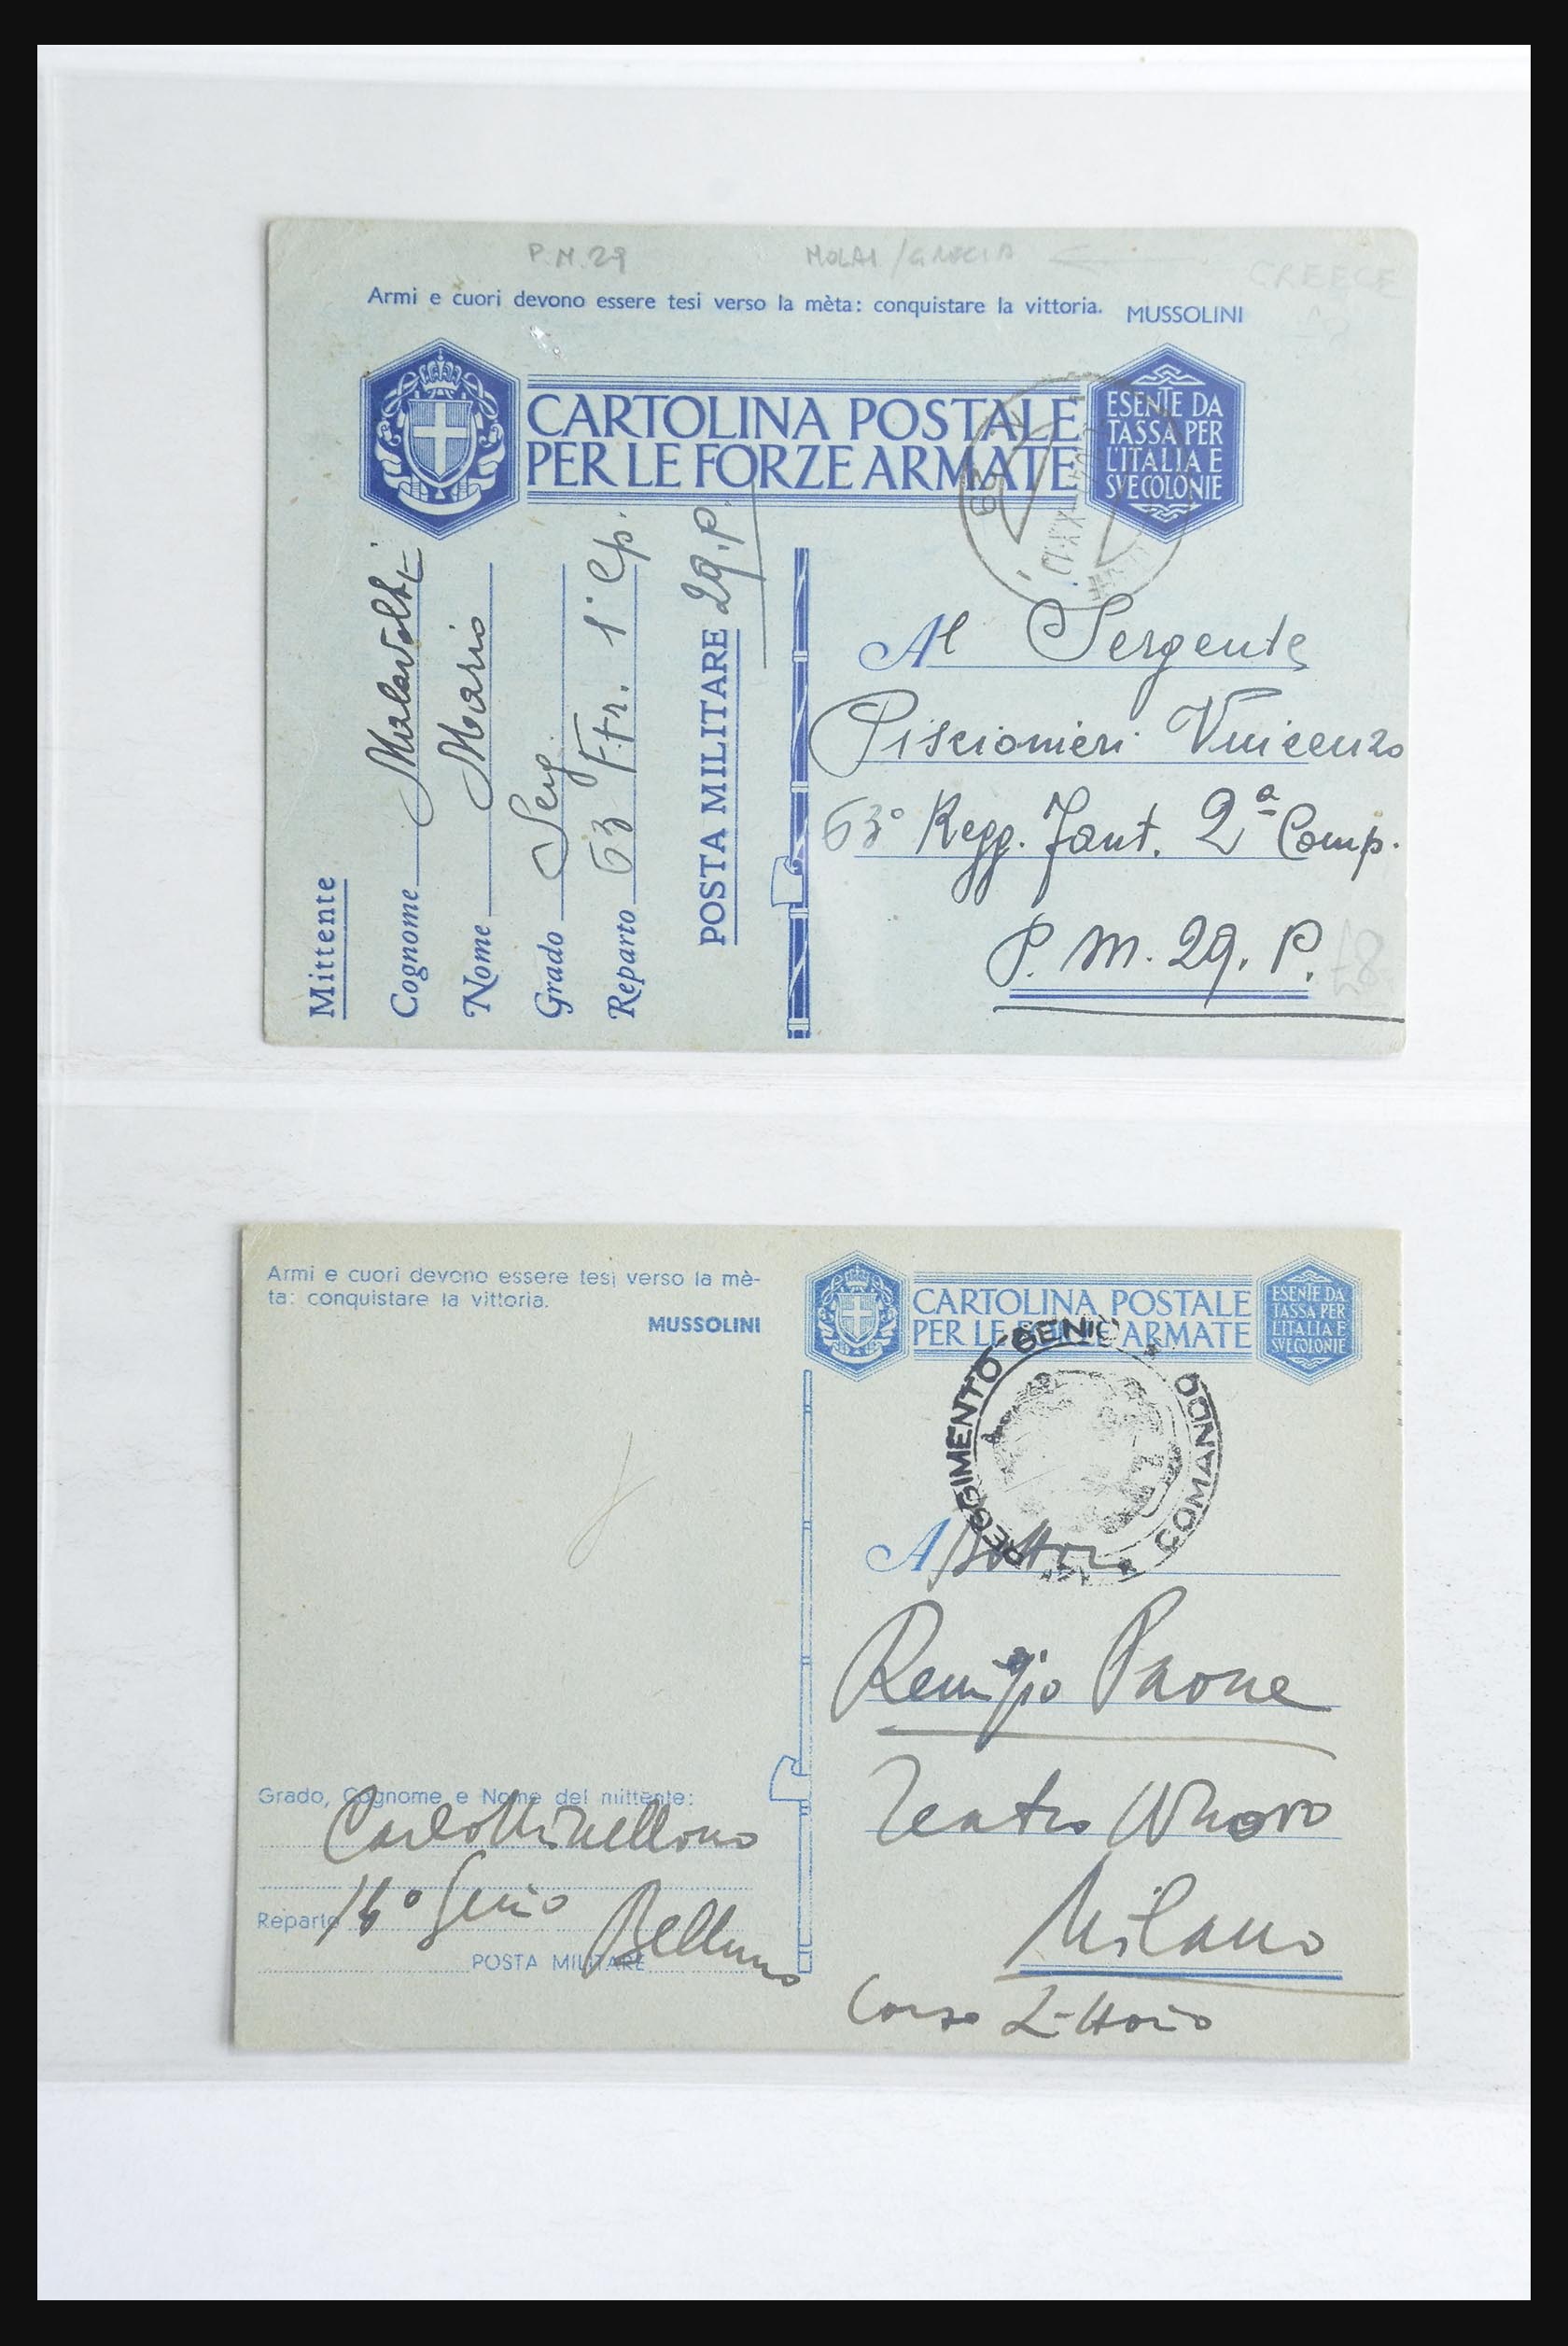 P.M. 29 MOLAI / GRECIA GREECE
Armi e cuori devono essere tesi verso la mèta: conquistare la vittoria. MUSSOLINI
CARTOLINA POSTALE
PER LE FORZE ARMATE
ESENTE DA
TASSA PER
L'ITALIA E
SVE COLONIE
Mittente
Cognome
Nome Mario
Grado Serg.
Reparto 63 Ftr. 1° Cp.
POSTA MILITARE 29.P.
Al Sergente
Piscionieri Vincenzo
63° Regg. Fant. 2ª Comp.
P.M. 29. P.
£8
Armi e cuori devono essere tesi verso la mè-
ta: conquistare la vittoria.
MUSSOLINI
CARTOLINA POSTALE
PER LE FORZE ARMATE
ESENTE DA
TASSA PER
L'ITALIA E
SVE COLONIE
REGGIMENTO GENIO
COMANDO
A
Remigio Paone
Teatro Nuovo
Milano
Corso
Grado, Cognome e Nome del mittente:
Carlo
Reparto Genio
POSTA MILITARE Belluno